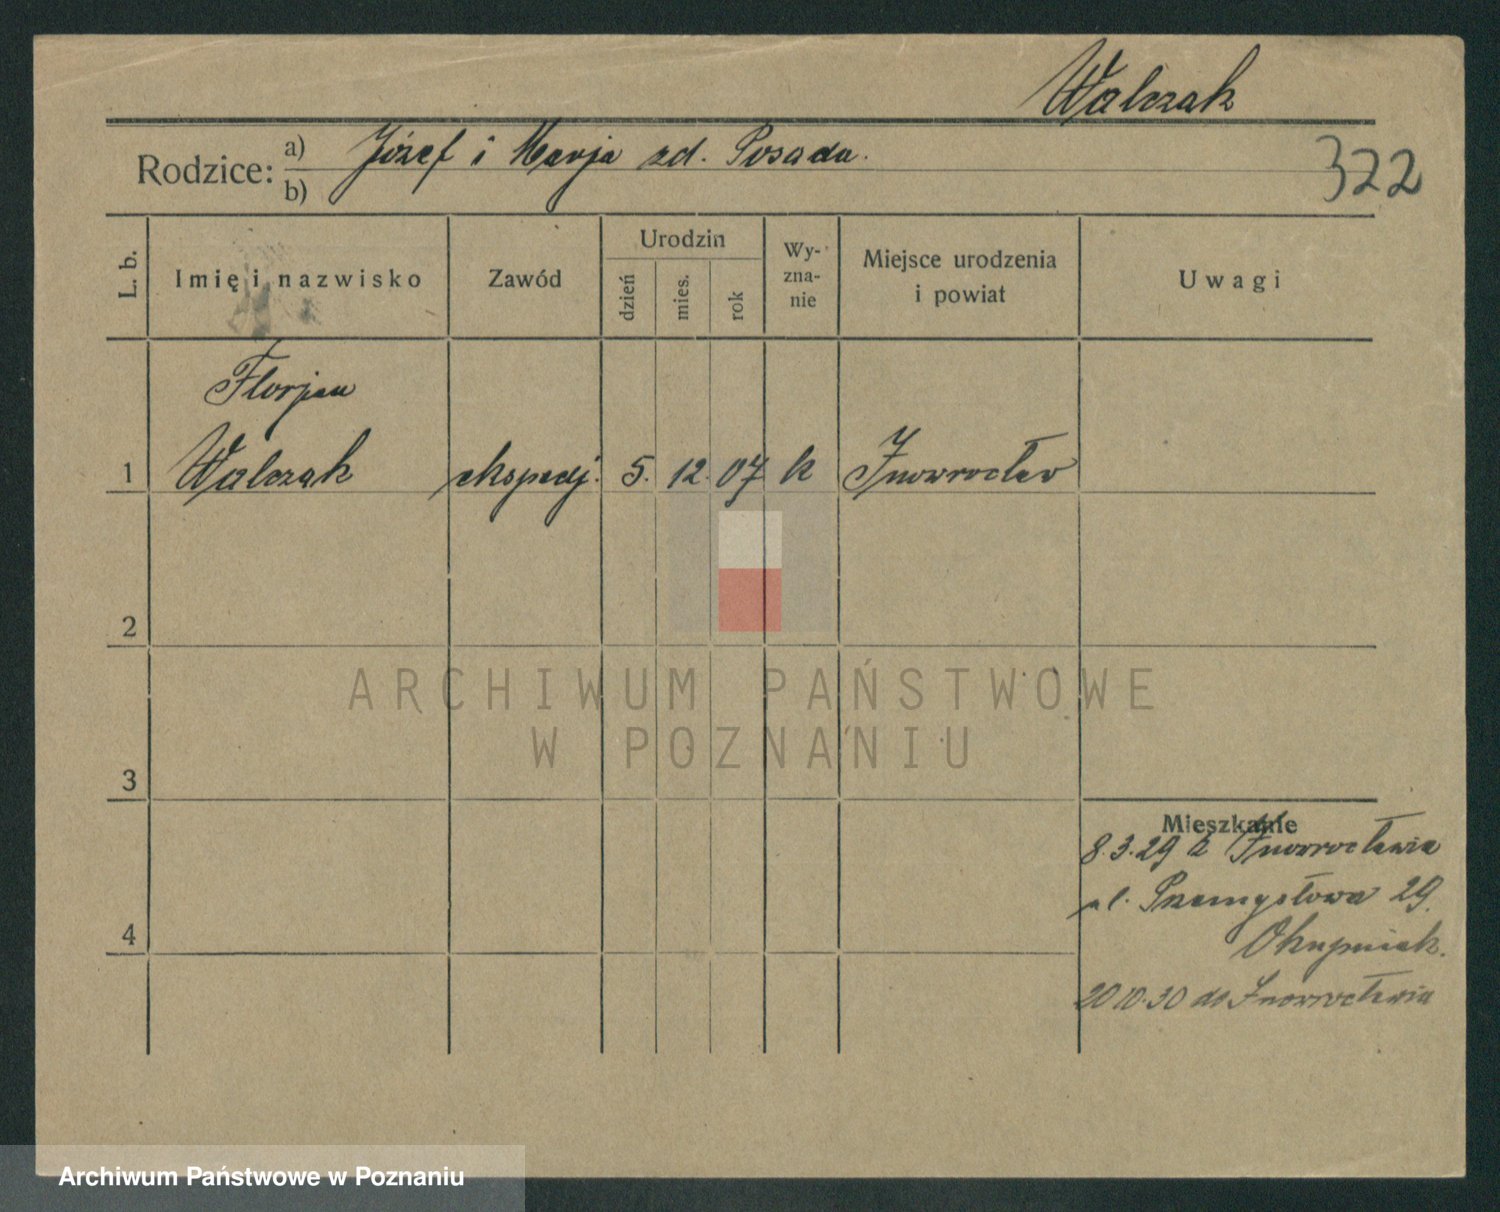 Walczak
Rodzice: a) Józef i Marja zd. Posada.
b)
322
L. b. Imię i nazwisko Zawód Urodzin dzień mies. rok Wyznanie Miejsce urodzenia i powiat Uwagi
Florjan
1 Walczak ekspedj. 5. 12. 07 k Inowrocław
2
ARCHIWUM PAŃSTWOWE
W POZNANIU
3
Mieszkanie
8.3.29 z Inowrocławia
ul. Przemysłowa 29.
4
20.10.30 do Inowrocławia
Archiwum Państwowe w Poznaniu